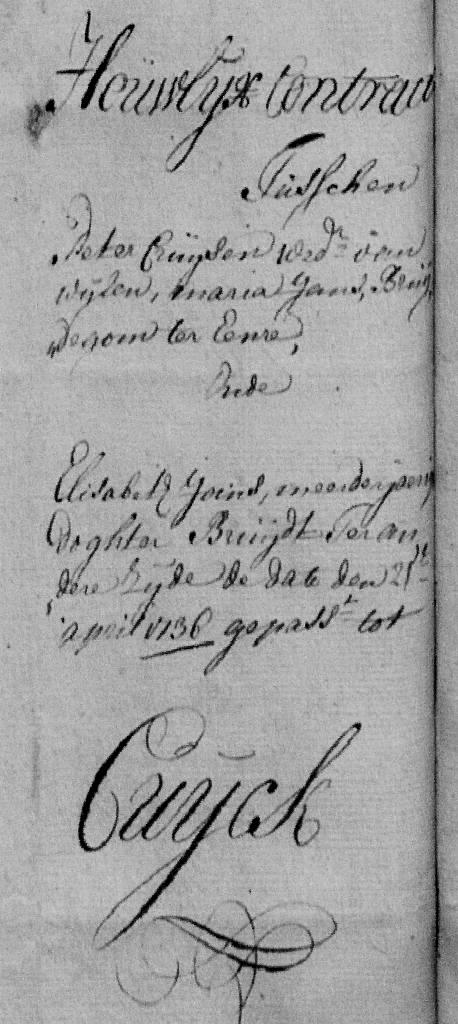 Heüwlyx Contract
Tüsschen
Peter Crüysen wedr van
wijlen, maria Jans, Brüy
degom ter Eenre,
Ende
Elisabeth Joins, meerderjaerig
Doghter Brüydt Ter an
dere Zyde de dato den 21t
april 1736 gepasst tot
Cuÿck